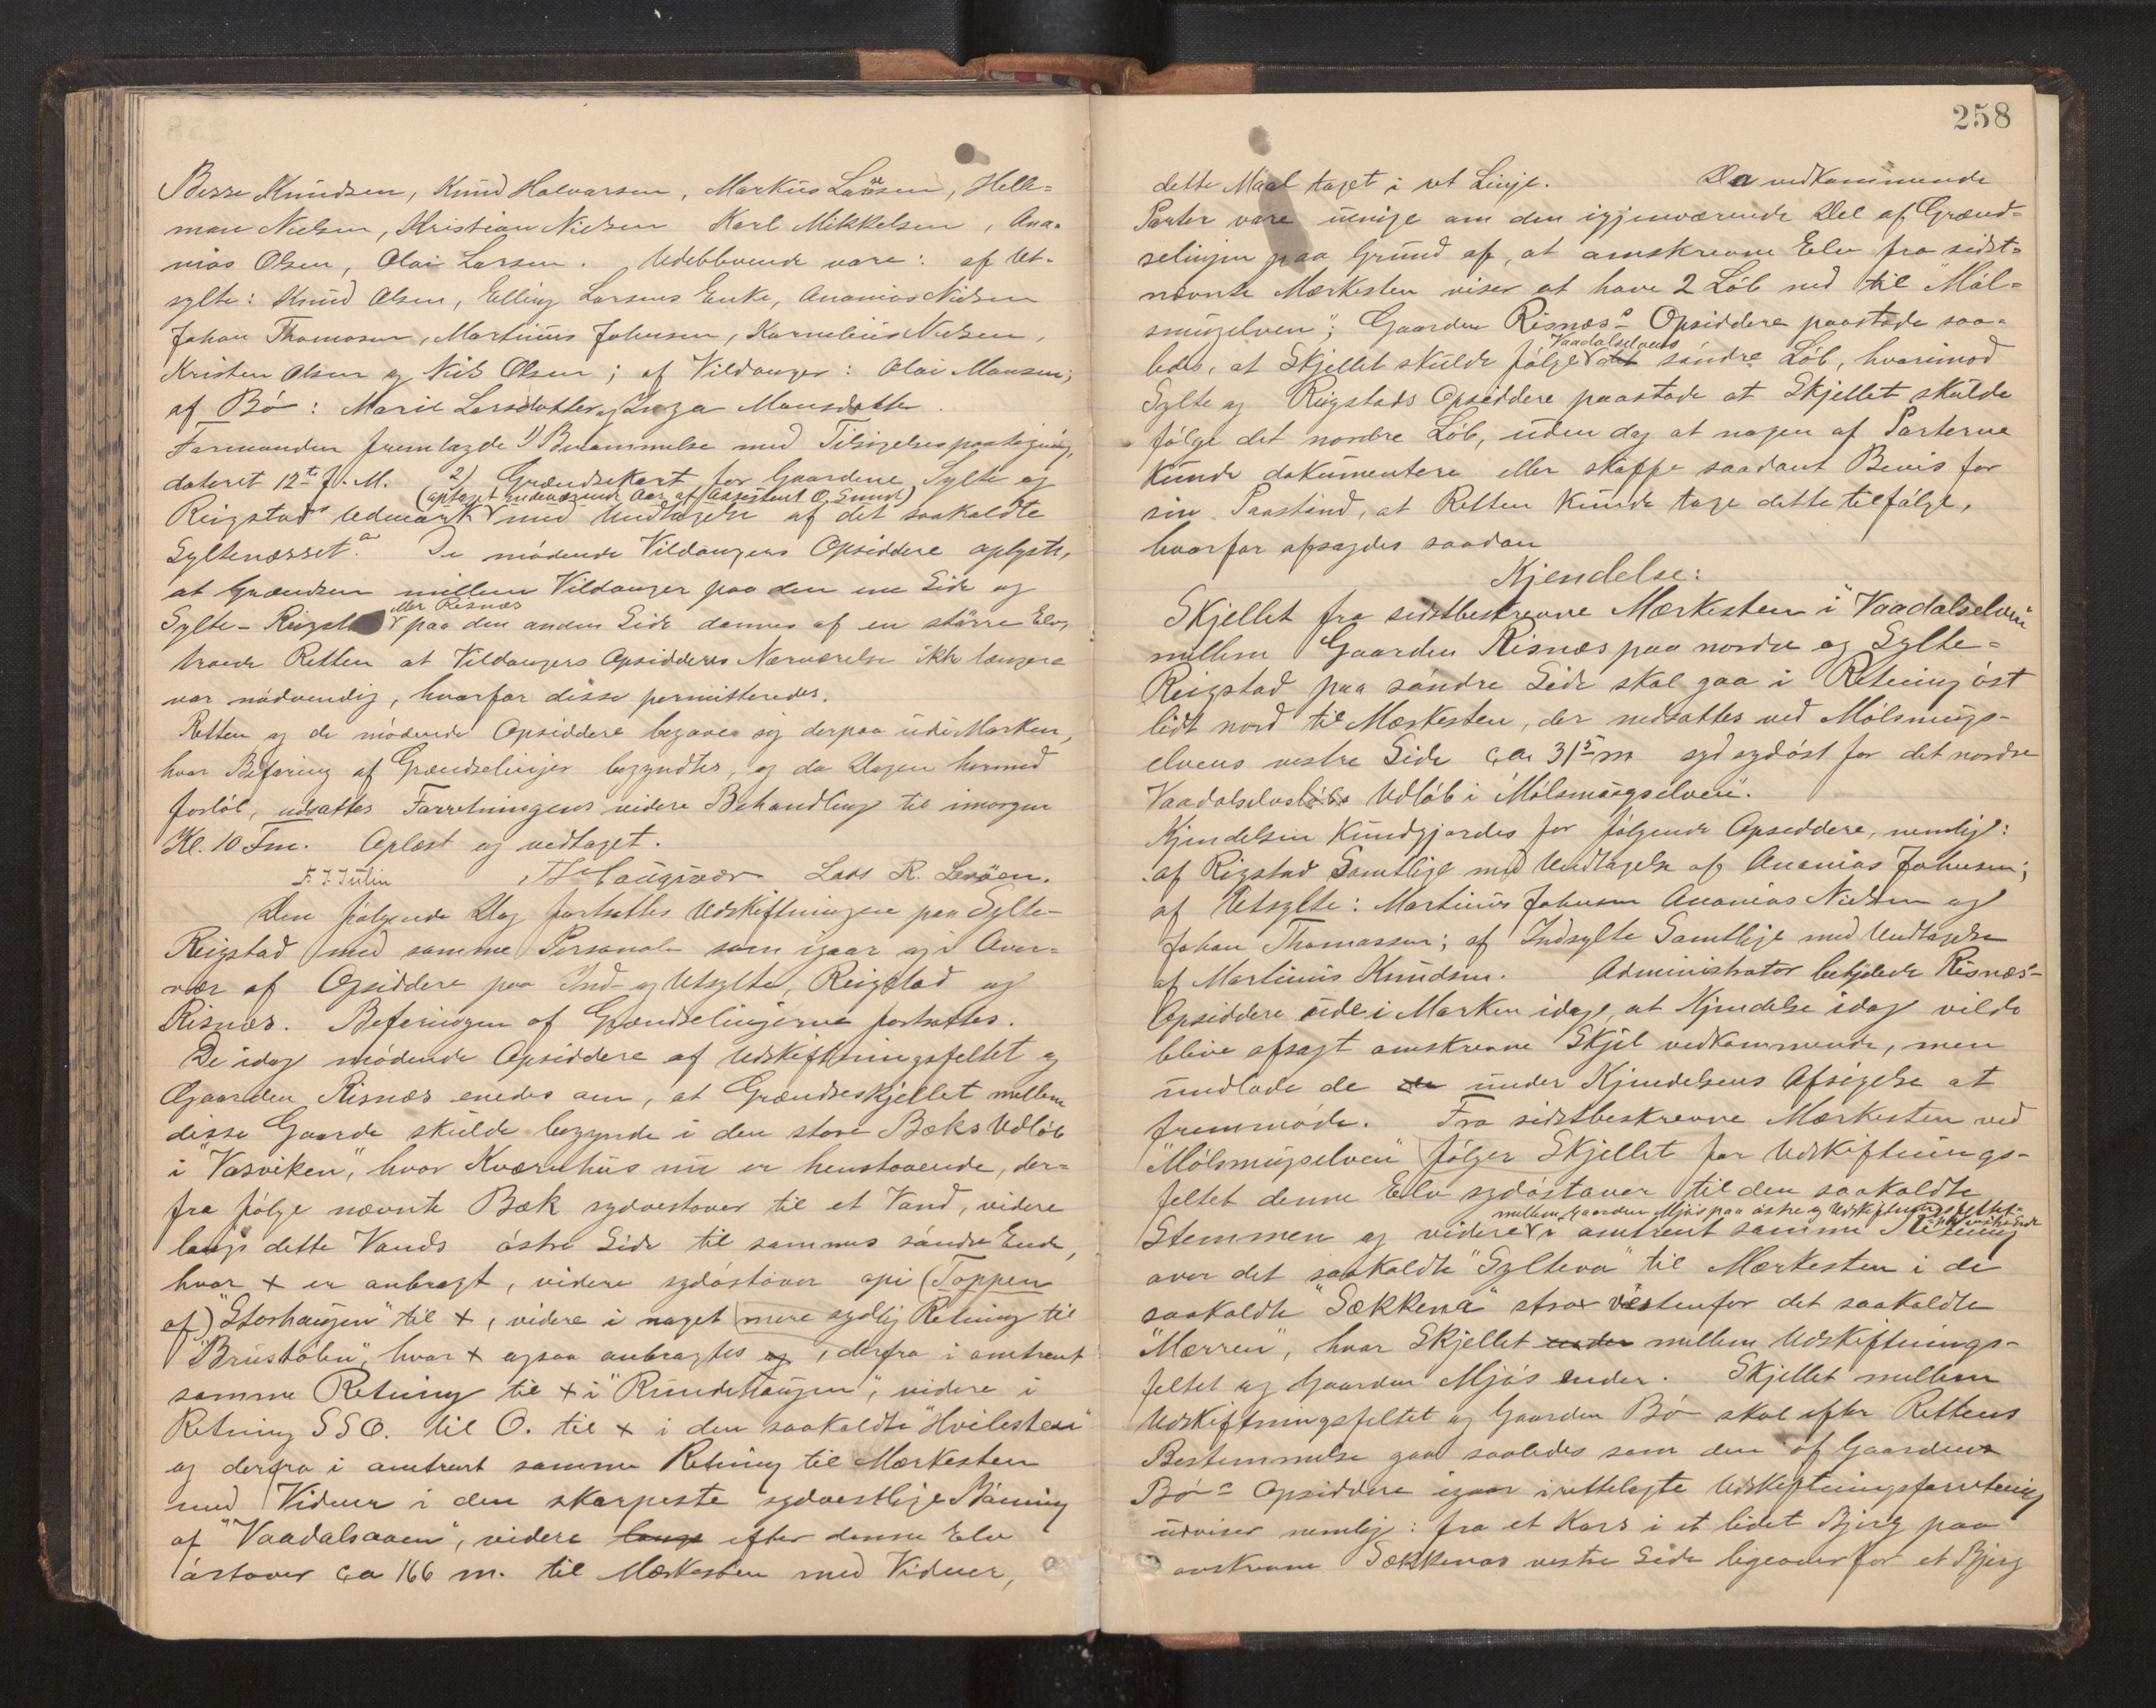 Besse Knudsen, Knud Halvarsen, Markus Larsen, Helle-
man Nielsen, Kristian Nielsen Karl Mikkelsen, Ana-
nias Olsen, Olai Larsen. Udeblivende vare: af Ut-
sylte: Knud Olsen, Elling Larsens Enke, Ananias Nielsen
Johan Thomasen, Martinus Johnsen, Kornelius Nielsen,
Kristen Olsen og Nils Olsen; af Vildanger: Olai Monsen;
af Bö: Marie Larsdatter og Inga Monsdatter.
Formanden fremlagde 1) Berammelse med Tilsigelsespaategning,
dateret 12te f. M. 2) Grændsekart for Gaardene Sylte og
(optaget indeværende Aar af Assistent O. Sunde)
Reigstads Udmark med Undtagelse af det saakaldte
Syltenæsset. De mödende Vildangers Opsiddere oplyste,
at Grændsen mellem Vildanger paa den ene Side og
eller Risnæs
Sylte-Reigstad paa den anden Side dannes af en större Elv,
troede Retten at Vildangers Opsidderes Nærværelse ikke længere
var nödvendig, hvorfor disse permitteredes.
Retten og de mödende Opsiddere begaves sig derpaa ud i Marken,
hvor Befaring af Grændselinjer begyndtes, og da Dagen hermed
forlöb, udsattes Forretningens videre Behandling til imorgen
Kl. 10 Fm. Oplæst og vedtaget.
Lars R. Leröen.
Den fölgende Dag fortsattes Udskiftningen paa Sylte-
Reigstad med samme Personale som igaar og i Over-
vær af Opsiddere paa Ind- og Utsylte, Reigstad og
Risnæs. Befaringen af Grændselinjerne fortsattes.
De idag mödende Opsiddere af Udskiftningsfeltet og
Gaarden Risnæs enedes om, at Grændseskjellet mellem
disse Gaarde skulde begynde i den store Bæks Udlöb
i "Vasviken", hvor Kværnhus nu er henstaaende, der-
fra fölge nævnte Bæk sydvestover til et Vand, videre
langs dette Vands östre Side til sammes söndre Ende,
hvor + er anbragt, videre sydöstover op i (Toppen
af) "Storhaugen" til +, videre i noget mere sydlig Retning til
"Brustölen", hvor + ogsaa anbragtes og, derfra i omtrent
samme Retning til + i "Rundehaugen", videre i
Retning SSO. til O. til + i den saakaldte "Hvilesten"
og derfra i omtrent samme Retning til Mærkesten
med Vidner i den skarpeste sydvestlige Böining
af "Vaadalsaaen", videre langs efter denne Elv
östover ca 166 m. til Mærkesten med Vidner,
258
dette Maal taget i ret Linje. Da vedkommende
Parter vare uenige om den igjenværende Del af Grænd-
selinjen paa Grund af, at omskrevne Elv fra sidst-
nævnte Mærkesten viser at have 2 Löb ned til "Möls-
mugelven"; Gaarden Risnæs's Opsiddere paastode saa-
Vaadalselvens
ledes, at Skjellet skulde fölge det söndre Löb, hvorimod
Sylte og Reigstads Opsiddere paastode at Skjellet skulde
fölge det nordre Löb, uden dog at nogen af Parterne
kunde dokumentere eller skaffe saadant Bevis for
sin Paastand, at Retten kunde tage dette tilfölge,
hvorfor afsagdes saadan
Kjendelse:
Skjellet fra sidstbeskrevne Mærkesten i "Vaadalselven"
mellem Gaarden Risnæs paa nordre og Sylte-
Reigstad paa söndre Side skal gaa i Retning öst
lidt nord til Mærkesten, der nedsattes ved Mölsmugs-
elvens vestre Side ca. 31,5 m sydsydöst for det nordre
Vaadalselvslöbs Udlöb i Mölsmugselven.
Kjendelsen kundgjordes for fölgende Opsiddere, nemlig:
af Rigstad Samtlige med Undtagelse af Ananias Johnsen;
af Utsylte: Martinus Johnsen Ananias Nielsen og
Johan Thomassen; af Indsylte Samtlige med Undtagelse
af Martinus Knudsen. Administrator betydede Risnæs-
Opsiddere ude i Marken idag, at Kjendelse idag vilde
blive afsagt omskrevne Skjel vedkommende, men
undlode de under Kjendelsens Afsigelse at
fremmöde. Fra sidstbeskrevne Mærkesten ved
"Mölsmugselven" fölger Skjellet for Udskiftnings-
feltet denne Elv sydöstover til den saakaldte
mellem Gaarden Mjös paa östre og Udskiftningsfeltet paa vestre Side
Stemmen og videre i omtrent samme Retning
over det saakaldte "Sylteva" til Mærkesten i de
saakaldte "Sækkena" strax vestenfor det saakaldte
"Mærren", hvor Skjellet mellem Udskiftnings-
feltet og Gaarden Mjös ender. Skjellet mellem
Udskiftningsfeltet og Gaarden Bö skal efter Rettens
Bestemmelse gaa saaledes som den af Gaardens
Bö's Opsiddere igaar irettelagte Udskiftningsforretning
udviser nemlig: fra et Kors i et lidet Bjerg paa
omskrevne Sækkenas vestre Side ligeover for et Bjerg